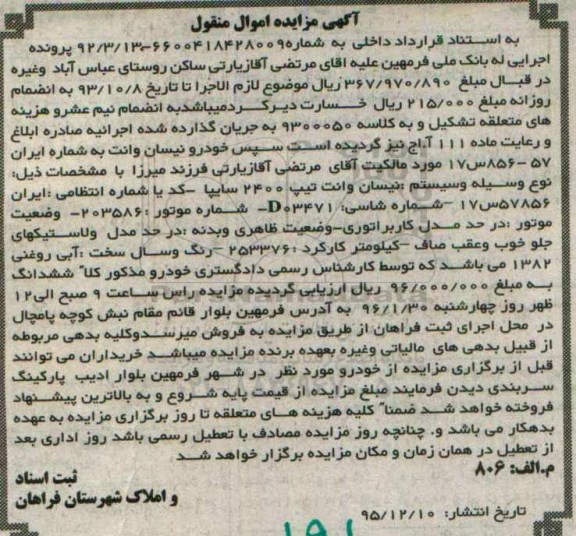 آگهی مزایده اموال منقول
به استناد قرارداد داخلی به شماره۶۶۰۰۴۱۸۴۲۸۰۰۹–۹۲/۳/۱۳ پرونده
اجرایی له بانک ملی فرمهین علیه اقای مرتضی آقازیارتی ساکن روستای عباس آباد وغیره
در قبال مبلغ ۳۶۷/۹۷۰/۸۹۰ ریال موضوع لازم الاجرا تا تاریخ ۹۳/۱۰/۸ به انضمام
روزانه مبلغ ۲۱۵/۰۰۰ ریال خسارت دیرکردمیباشدبه انضمام نیم عشرو هزینه
های متعلقه تشکیل و به کلاسه ۹۳۰۰۰۵۰ به جریان گذارده شده اجرائیه صادره ابلاغ
و رعایت ماده ۱۱۱ آ.اج نیز گردیده است سپس خودرو نیسان وانت به شماره ایران
۵۷ -۸۵۶س۱۷ مورد مالکیت آقای مرتضی آقازیارتی فرزند میرزا با مشخصات ذیل:
نوع وسیله وسیستم :نیسان وانت تیپ ۲۴۰۰ سایپا –کد یا شماره انتظامی :ایران
۵۷۸۵۶س۱۷ –شماره شاسی: D۰۳۴۷۱- شماره موتور :۲۰۳۵۸۶- وضعیت
موتور :در حد مدل کاربراتوری-وضعیت ظاهری وبدنه :در حد مدل ولاستیکهای
جلو خوب وعقب صاف –کیلومتر کارکرد :۲۵۳۳۷۶ –رنگ وسال سخت :آبی روغنی
۱۳۸۲ می باشد که توسط کارشناس رسمی دادگستری خودرو مذکور کلا" ششدانگ
به مبلغ ۹۶/۰۰۰/۰۰۰ ریال ارزیابی گردیده مزایده راس ساعت ۹ صبح الی۱۲
ظهر روز چهارشنبه ۹۶/۱/۳۰ به آدرس فرمهین بلوار قائم مقام نبش کوچه پامچال
در محل اجرای ثبت فراهان از طریق مزایده به فروش میرسدوکلیه بدهی مربوطه
از قبیل بدهی های مالیاتی وغیره بعهده برنده مزایده میباشد خریداران می توانند
قبل از برگزاری مزایده از خودرو مورد نظر در شهر فرمهین بلوار ادیب پارکینگ
سربندی دیدن فرمایند مبلغ مزایده از قیمت پایه شروع و به بالاترین پیشنهاد
فروخته خواهد شد ضمنا" کلیه هزینه های متعلقه تا روز برگزاری مزایده به عهده
بدهکار می باشد و. چنانچه روز مزایده مصادف با تعطیل رسمی باشد روز اداری بعد
از تعطیل در همان زمان و مکان مزایده برگزار خواهد شد
م.الف: ۸۰۶
ثبت اسناد
و املاک شهرستان فراهان
تاریخ انتشار: ۹۵/۱۲/۱۰
۱۹۱